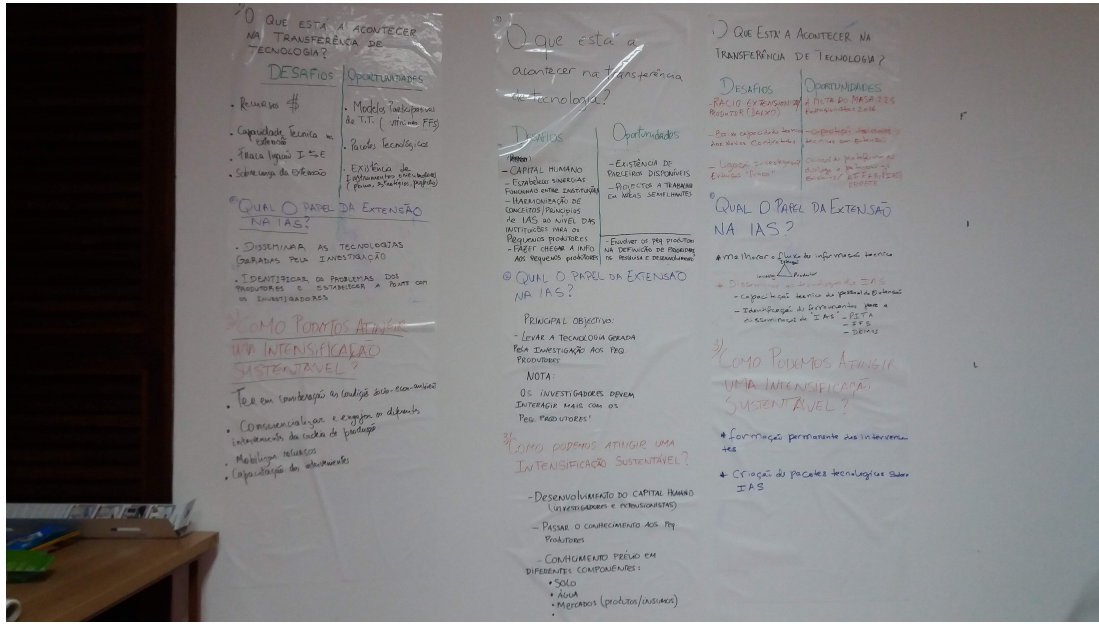 1) O QUE ESTÁ A ACONTECER
NA TRANSFERÊNCIA DE
TECNOLOGIA?
DESAFIOS
• Recursos $
• Capacidade Tecnica
extensão
• Fraca ligação I S E
• Sobrecarga da Extensão
OPORTUNIDADES
• Modelos Participativos
de T.T. ( FFS)
• Pacotes Tecnológicos
• EXISTÊNCIA de
(planos, estratégias, projetos)
2) QUAL O PAPEL DA EXTENSÃO
NA IAS?
• DISSEMINAR AS TECNOLOGIAS
GERADAS PELA INVESTIGAÇÃO
• IDENTIFICAR OS PROBLEMAS DOS
PRODUTORES E ESTABELECER A PONTE COM
OS INVESTIGADORES
3) COMO PODEMOS ATINGIR
UMA INTENSIFICAÇÃO
SUSTENTÁVEL?
• Ter em consideração as condição sócio-econ-ambien
• Consciencializar e engajar os diferentes
intervenientes da cadeia de produção
• Mobilizar recursos
• Capacitação dos intervenientes
O que está a
acontecer na transferência
de tecnologia?
Desafios
- CAPITAL HUMANO
- ESTABELECER SINERGIAS
FUNCIONAIS ENTRE INSTITUIÇÃO
- HARMONIZAÇÃO DE
CONCEITOS/PRINCIPIOS
de IAS AO NIVEL DAS
INSTITUIÇÕES PARA OS
PEQUENOS PRODUTORES
- FAZER CHEGAR A INFO
AOS PEQUENOS PRODUTORES
Oportunidades
- EXISTÊNCIA DE
PARCEIROS DISPONÍVEIS
- PROJECTOS A TRABALHAR
EM ÁREAS SEMELHANTES
- Envolver os peq produtores
NA DEFINIÇÃO DE PRIORIDADES
DE PESQUISA E DESENVOLVIMENTO
② QUAL O PAPEL DA EXTENSÃO
NA IAS?
PRINCIPAL OBJECTIVO:
- LEVAR A TECNOLOGIA GERADA
PELA INVESTIGAÇÃO AOS PEQ
PRODUTORES
NOTA:
OS INVESTIGADORES DEVEM
INTERAGIR MAIS COM OS
PEQ. PRODUTORES!
3) COMO PODEMOS ATINGIR UMA
INTENSIFICAÇÃO SUSTENTÁVEL?
- DESENVOLVIMENTO DO CAPITAL HUMANO
(INVESTIGADORES E EXTENSIONISTAS)
- PASSAR O CONHECIMENTO AOS Peq
Produtores
- CONHECIMENTO PRÉVIO EM
DIFERENTES COMPONENTES:
• SOLO
• ÁGUA
• MERCADOS (produtos/insumos)
1) QUE ESTÁ A ACONTECER NA
TRANSFERÊNCIA DE TECNOLOGIA?
DESAFIOS
- RÁCIO EXTENSIONISTA
PRODUTOR (BAIXO)
OPORTUNIDADES
2) QUAL O PAPEL DA EXTENSÃO
NA IAS?
* Melhorar o fluxo de informação tecnica
Produtor
- Capacitação tecnica do pessoal de Extensão
- Identificação de ferramentas para a
disseminação de "IAS" - PITA
- FFS
- DEMOS
3) COMO PODEMOS ATINGIR
UMA INTENSIFICAÇÃO
SUSTENTÁVEL?
* formação permanente dos intervenien
tes
* Criação de pacotes tecnologicos sobre
IAS